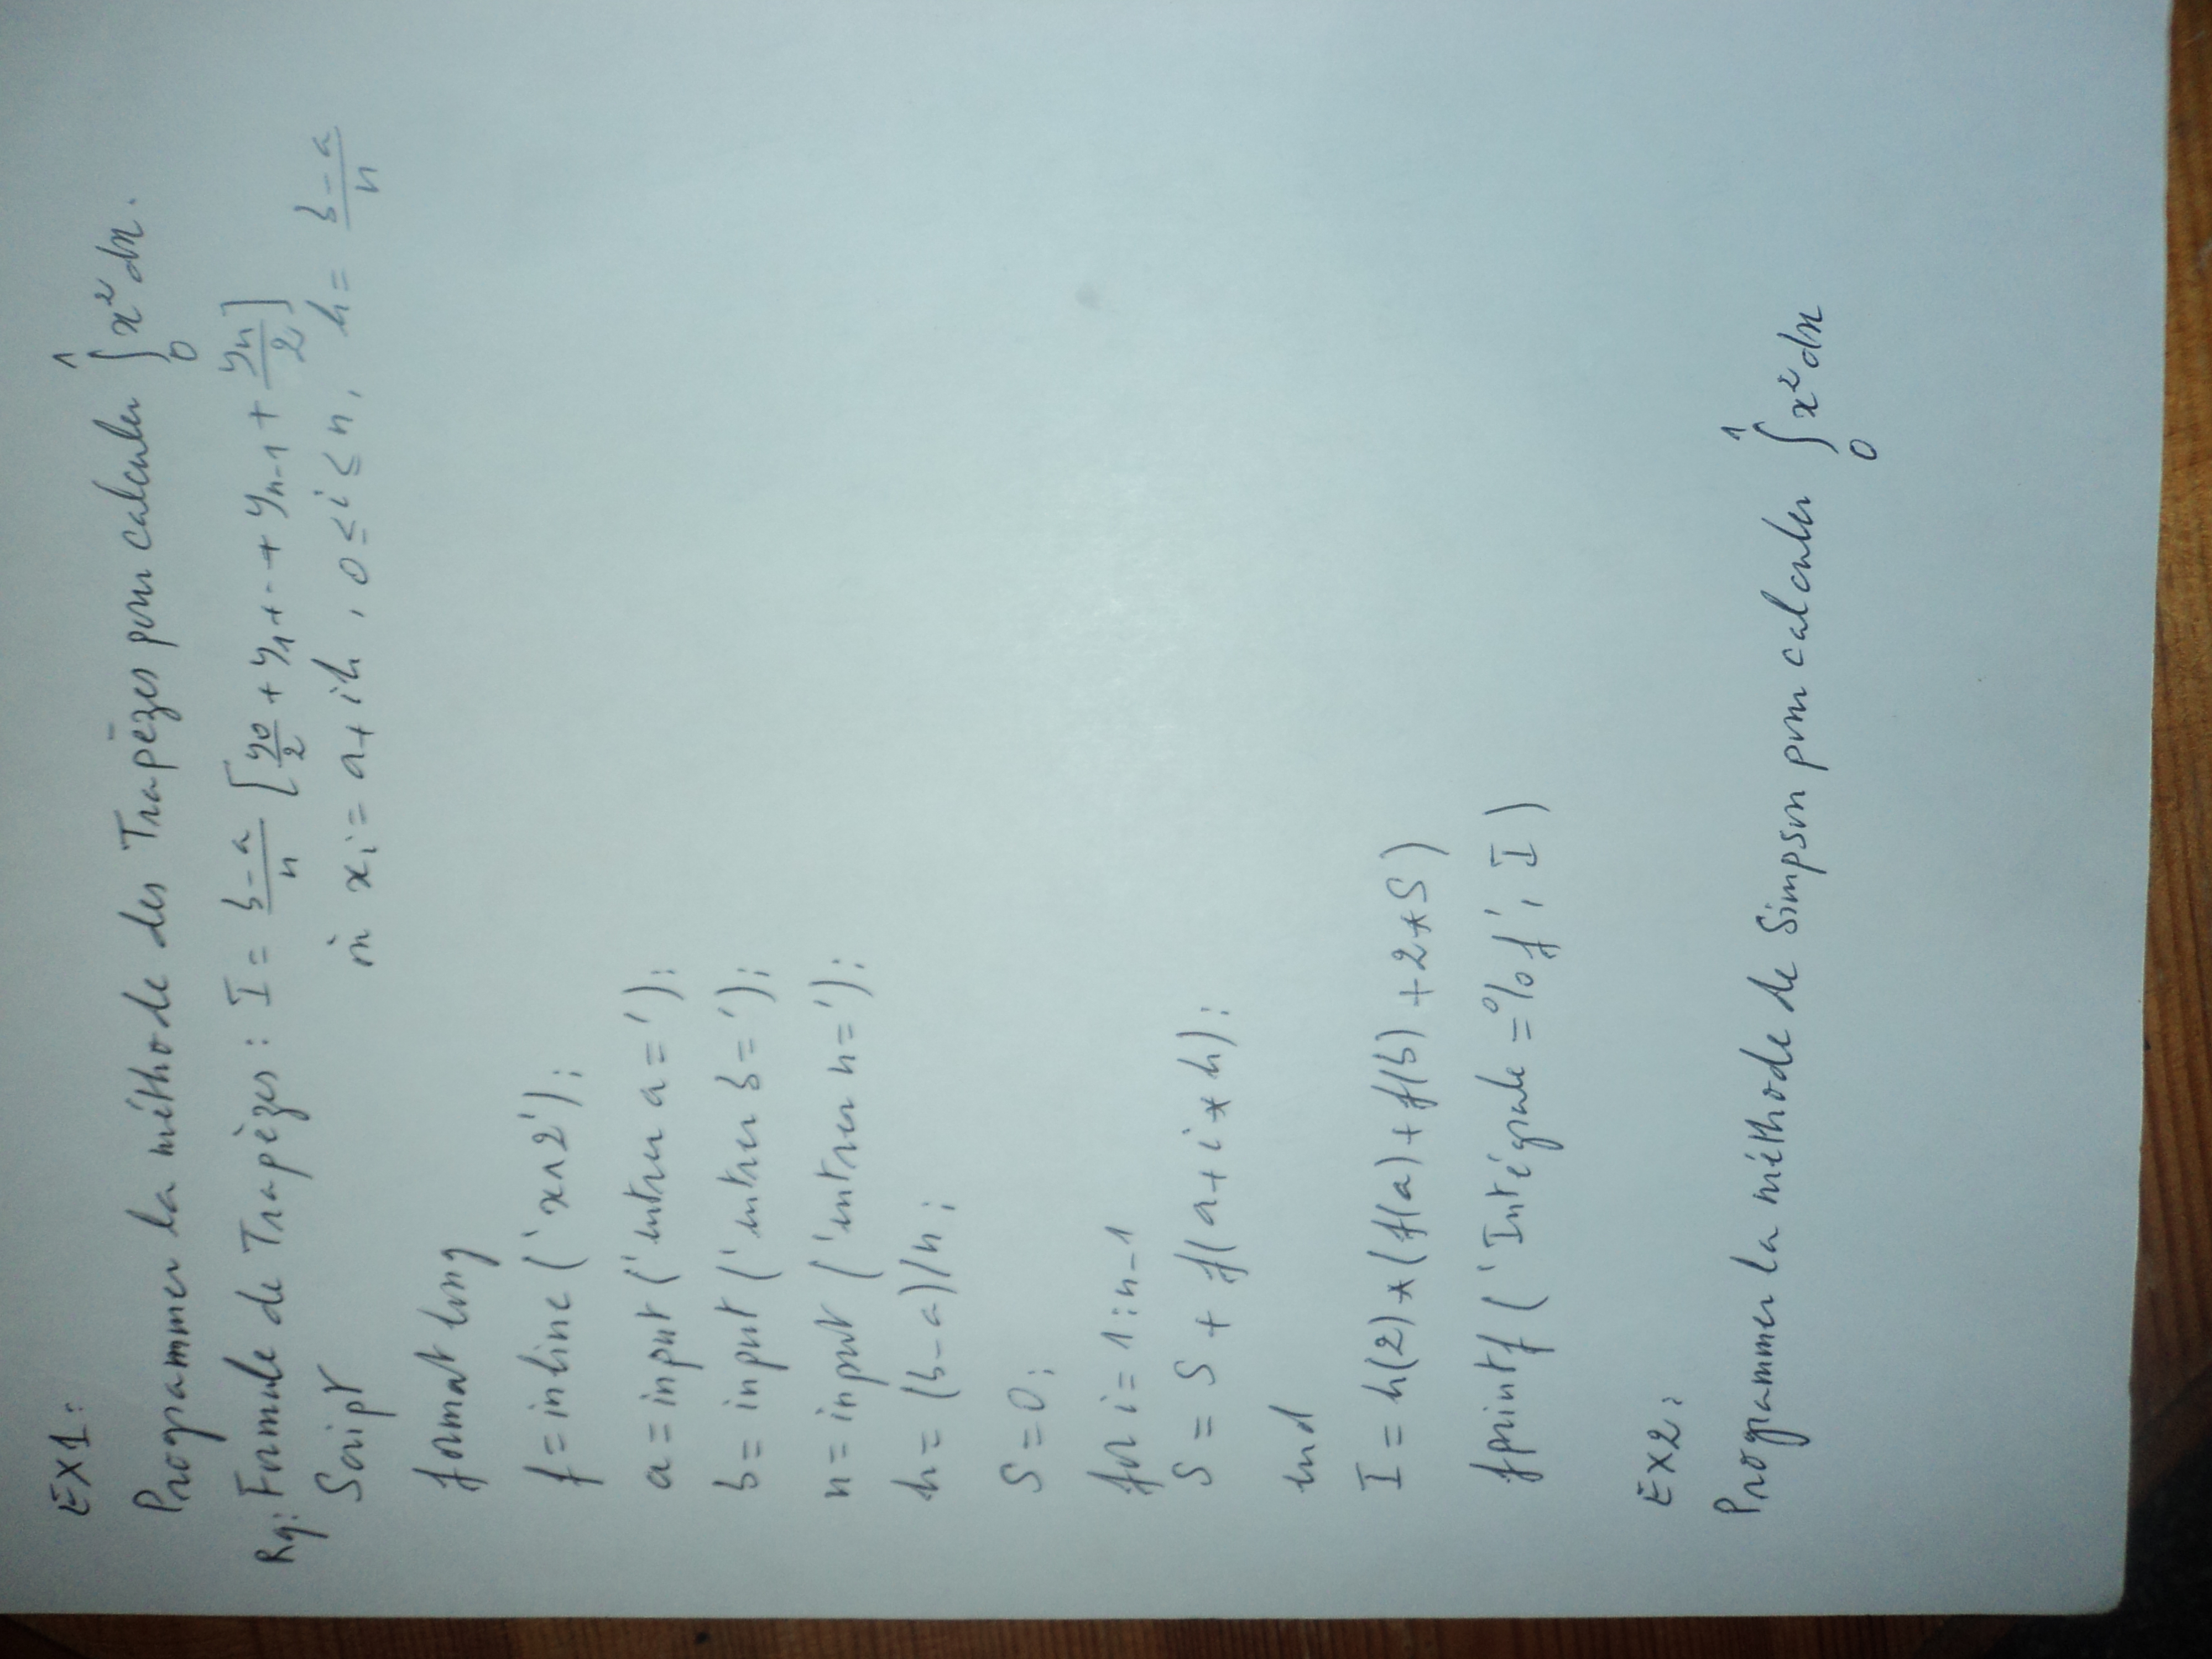 EX1:
Programmer la méthode des Trapèzes pour calculer ∫₀¹ x² dx.
Rq: Formule de Trapèzes : I = (b-a)/n [y0/2 + y1 + -- + yn-1 + yn/2]
Script où xi = a + ih, 0 ≤ i ≤ n, h = (b-a)/n
format long
f = inline ('x^2');
a = input ('entrer a=');
b = input ('entrer b=');
n = input ('entrer n=');
h = (b-a)/n;
S = 0;
for i = 1:n-1
S = S + f(a+i*h);
end
I = h(2)*(f(a)+f(b)+2*S)
fprintf ('Intégrale=%f', I)
EX2:
Programmer la méthode de Simpson pour calculer ∫₀¹ x² dx